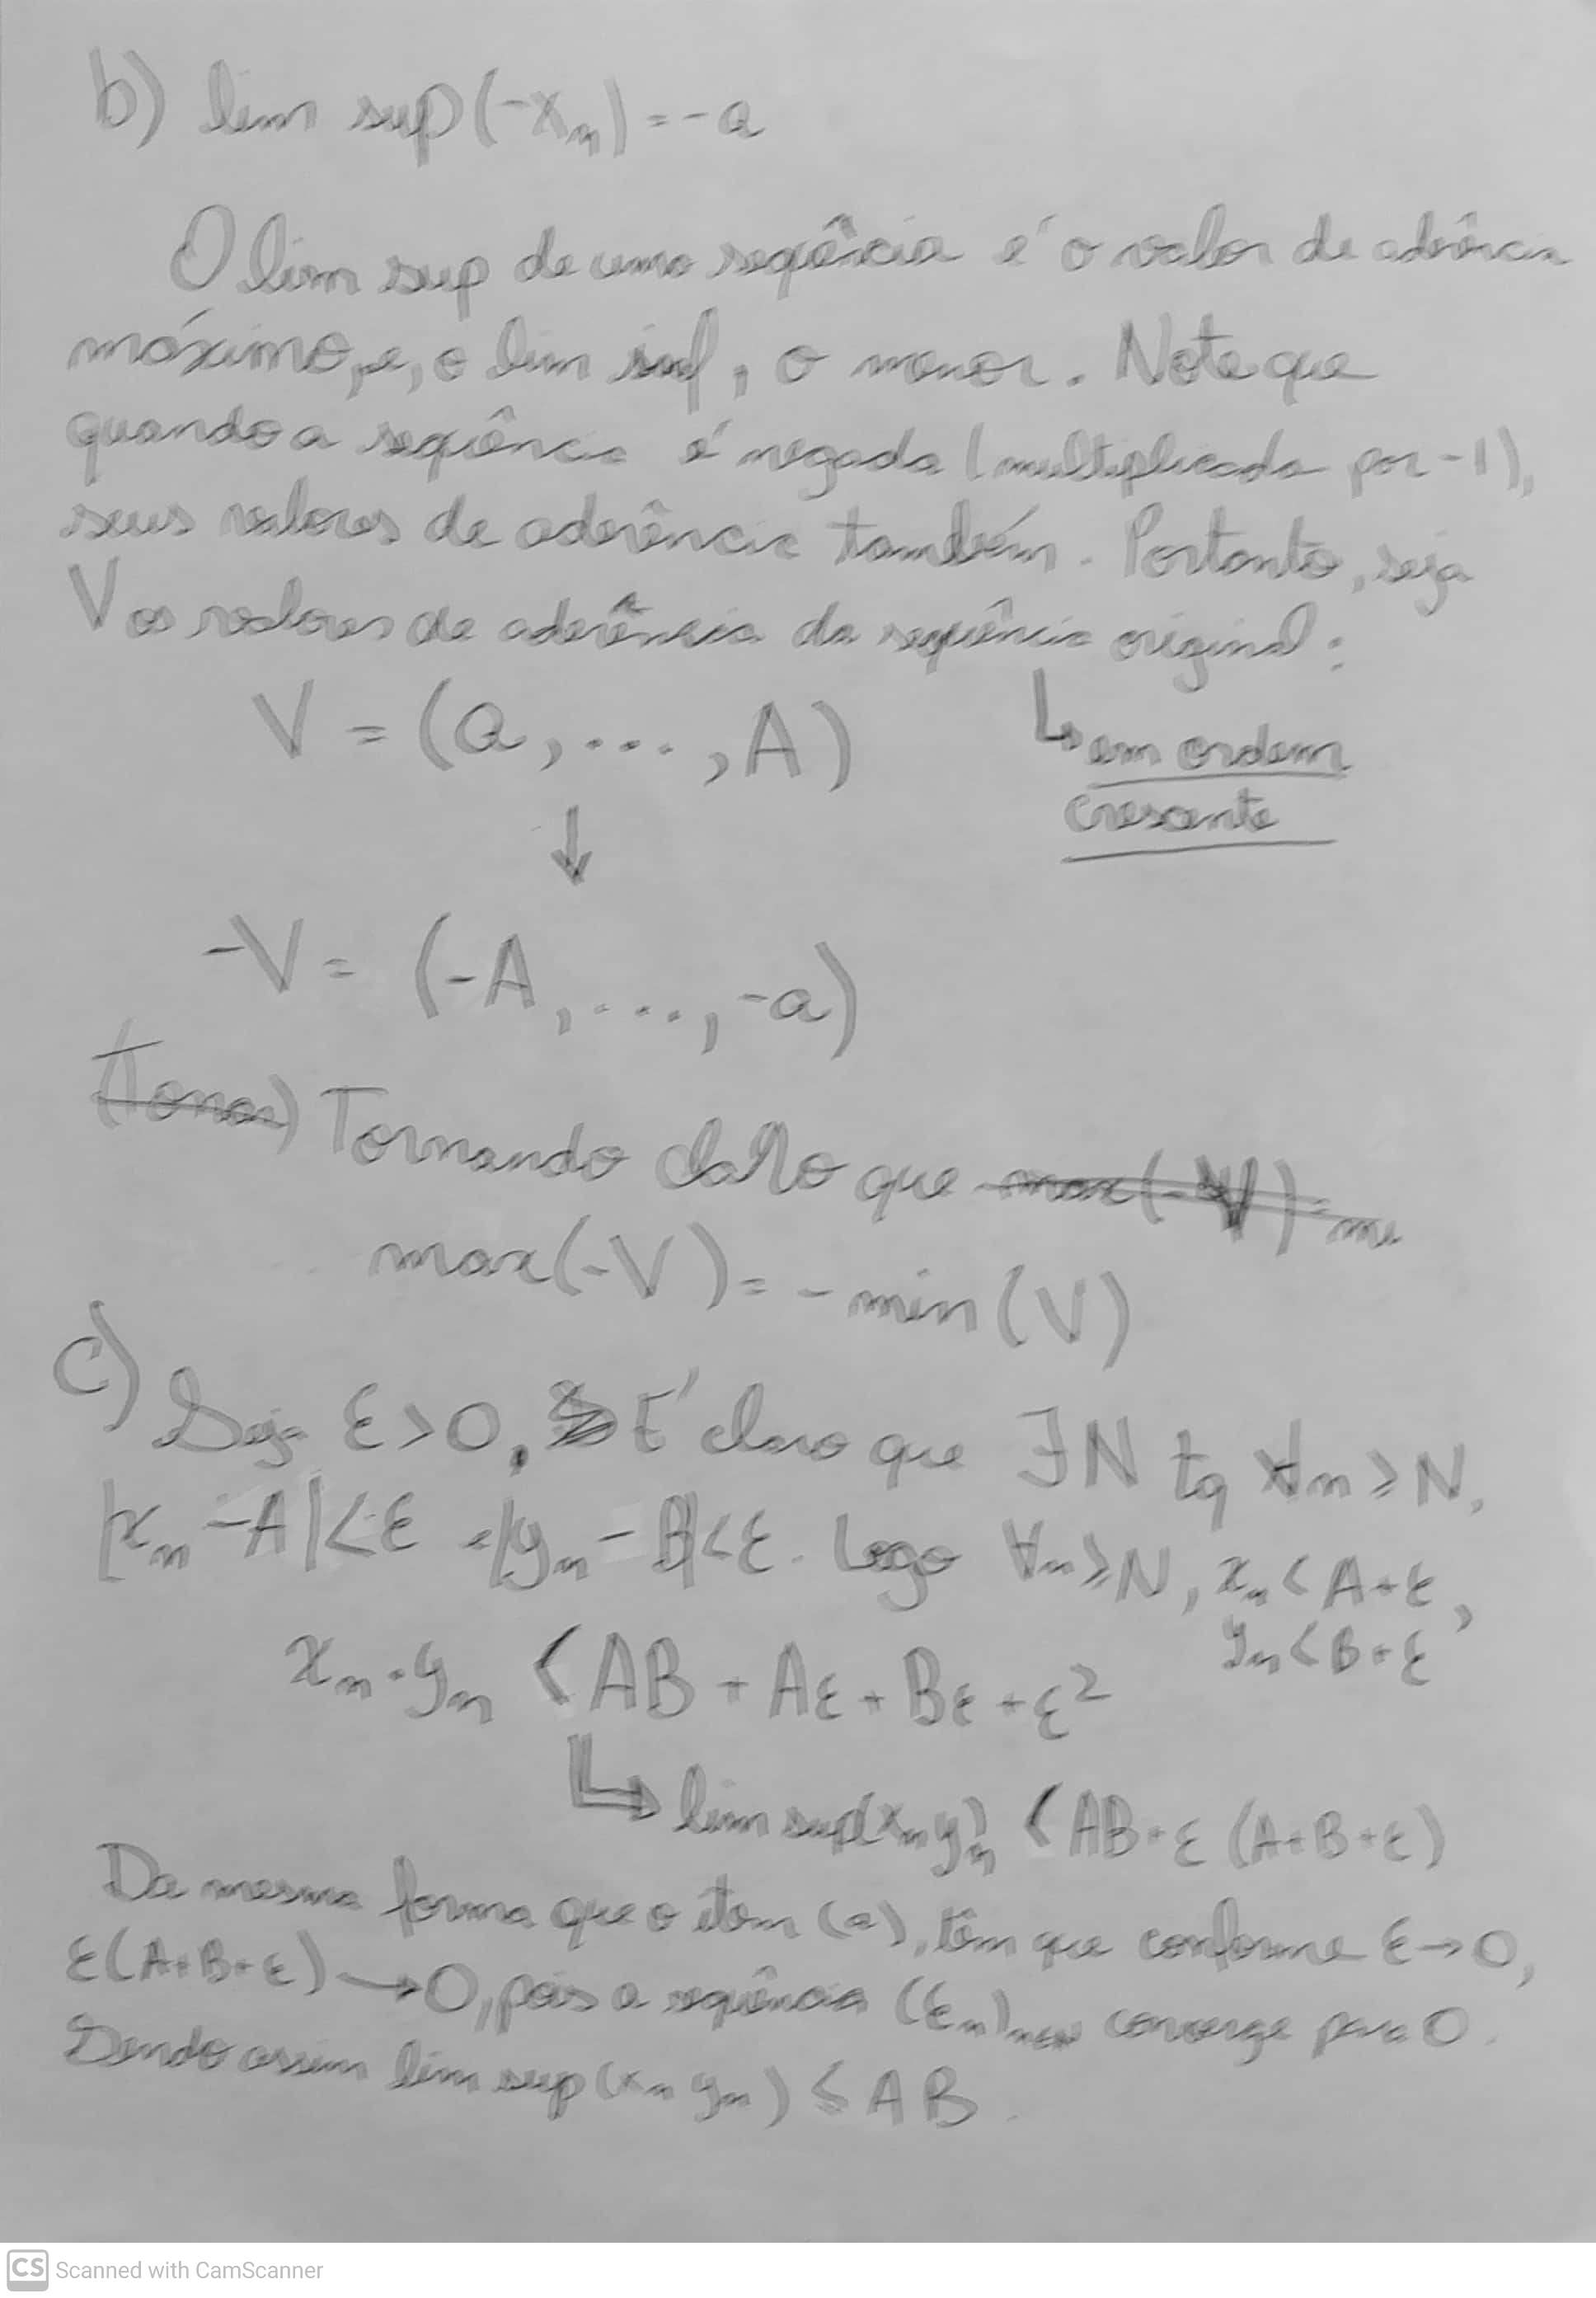 b) lim sup(-xₙ) = -a
O lim sup de uma seqência é o valor de aderência
máximo, e, o lim inf, o menor. Note que
quando a seqência é negada (multiplicada por -1),
seus valores de aderência também. Portanto, seja
V os valores de aderência da seqência original:
V = (a, ..., A)
↳ em ordem
crescente
↓
-V = (-A, ..., -a)
Tornando claro que
max(-V) = -min(V)
c) Seja ε>0, É claro que ∃N tq ∀n≥N,
|xₙ - A|<ε e |yₙ - B|<ε. Logo ∀n≥N, xₙ < A+ε,
yₙ < B+ε
xₙ·yₙ < AB + Aε + Bε + ε²
↳ lim sup(xₙyₙ) < AB+ε(A+B+ε)
Da mesma forma que o item (a), têm que conforme ε→0,
ε(A+B+ε)→0, pois a seqência (εₙ)ₙ∈ℕ converge para 0.
Sendo assim lim sup(xₙyₙ) ≤ AB.
CS Scanned with CamScanner